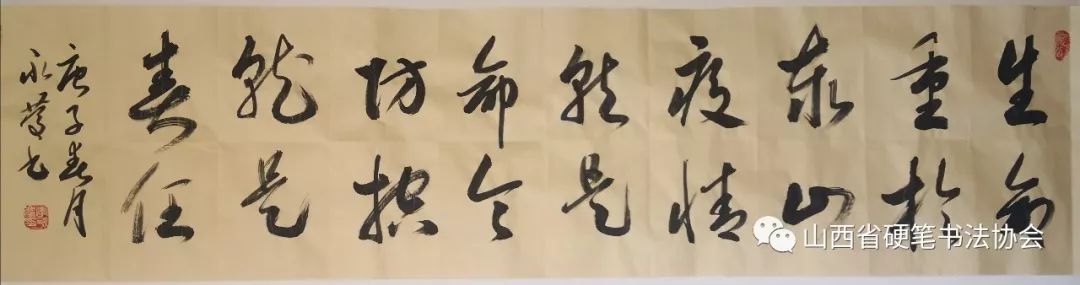 生命
重於
泰山
疫情
就是
命令
防控
就是
责任
庚子春月
永书
山西省硬笔书法协会